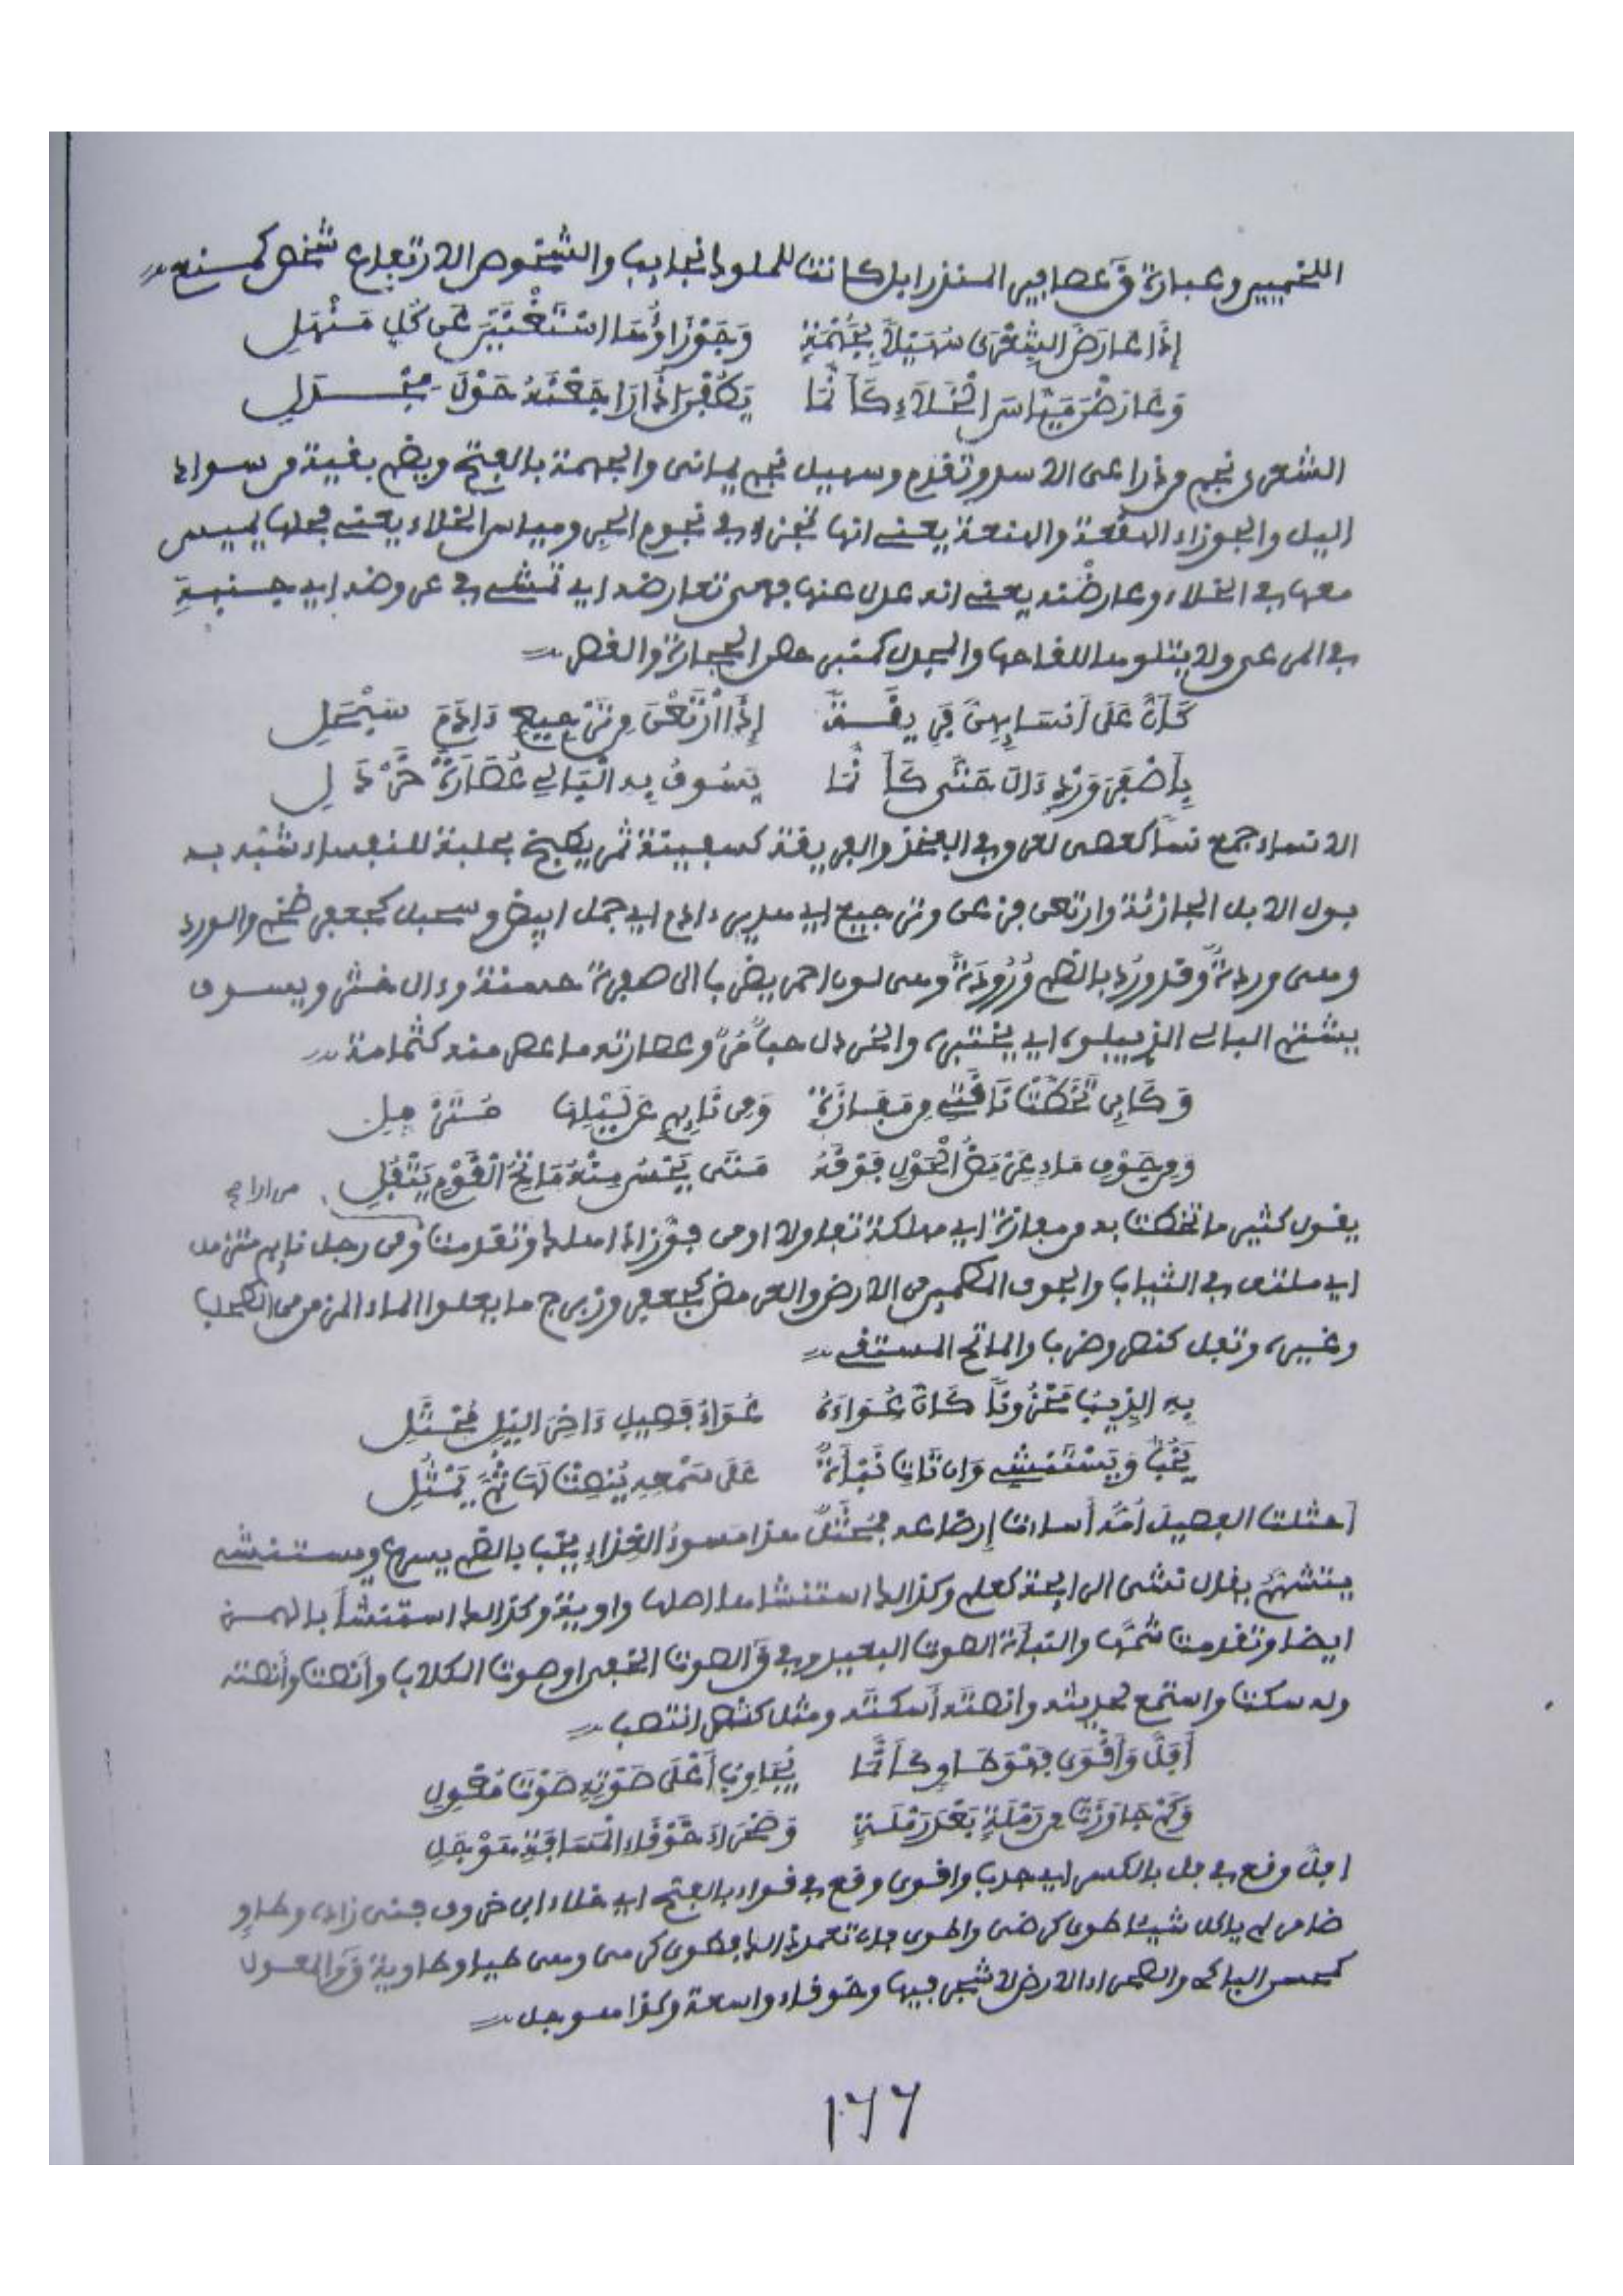 اللخميين وعبارة ق عصافير المنذر ابل كانت للملوك نجايب والشخوص الارتفاع شخص كمنع
إِذَا عَارَضَ الشِّعْرَى سُهَيْلٌ بِجُهْمَةٍ وَجَوْزَاؤُهَا اسْتَغْنَيْنَ عَن كُلِّ مَنْهَلِ
وَعَارَضْنَ مَيَّاسَ الْخَلَاءِ كَأَنَّمَا يَطُفْنَ إِذَا رَاجَعْنَهُ حَوْلَ مِجْدَلِ
الشعرى نجم وذراعى الاسد وتقدم وسهيل نجم يمانى والجهمة بالفتح ويضم بقية من سواد
اليل والجوزاء الهقعة والهنعة يعنى انها تجزء في نجوم الحر ومياس الخلاء يعنى فحلها يميس
معها في الخلاء وعارضنه يعنى انه عدل عنها فهى تعارضه اي تمشى في عروضه اي جنبه
في المرعى ولا يتلوها للقاحها والمجدل كمنبر حصن الحجارة والقصر
كَأَنَّ عَلَى أَنْسَائِهِنَّ فَرِيقَةً إِذَا ارْتَعْنَ مِن تَرْجِيعِ ءَادَمَ سَبْحَلِ
بِأَصْفَرَ وَرْدٍ ءَالَ حَتَّى كَأَنَّمَا يَسُوفُ بِهِ الْبَالِي عُصَارَةَ خَرْدَلِ
الانساء جمع نسا كعصى لعرق في الفخذ والفريقة كسفينة تمر يطبخ بحلبة للنفساء شبه به
بول الابل الجازئة وارتعن فزعن وترجيع اي هدير ءادم اي جمل ابيض وسبحل كجعفر ضخم والورد
وهى وردة وقد ورد بالضم وُرُودَةً وهى لون احمر يضرب الى صفرة حسنة وءال خثر ويسوف
يشتم البالي الذي يبلوه اي يختبره والخردل حب م وعصارته ما عصر منه كثمامة
وَكَائِن تَخَطَّتْ نَاقَتِي مِن مَفَازَةٍ وَمِن نَائِمٍ عَن لَيْلِهَا مُتَزَمِّلِ
وَمِن جَوْفِ مَاءٍ عَرْمَضُ الْحَوْلِ فَوْقَهُ مَتَى يَحْسُ مِنْهُ مَائِحُ الْقَوْمِ يَتْفُلِ
يقول كثير ما تخطت به من مفازة اي مهلكة تفاولا او من فوز اذا هلك وتقدمت ومن رجل نايم متزمل
اي ملتف في الثياب والجوف المطمين من الارض والعرمض كجعفر وزبرج ما يعلوا الماء المزمن من الطحلب
وغيره وتفل كنصر وضرب والمائح المستقى
بِهِ الذِّيبُ مَحْزُوناً كَأَنَّ عُوَاءَهُ عُوَاءُ فَصِيلٍ ءَاخِرَ اليْلِ مُحْثَلِ
يَخُبُّ وَيَسْتَنْشِي وَإِن تَاتِ نَبْأَةٌ عَلَى سَمْعِهِ يُنْصِتْ لَهَا ثُمَّ يَمْثُلِ
احثلت الفصيل أمُّه أساءت إرضاعه فمُحْثَلٌ هذا مسوءُ الغذاءِ يخب بالضم يسرع ويستنشى
يتشمم يقال نشى الرايحة كعلم وكذالك استنشا هذا اصلها واوية وكذالك استنشأ بالهمز
ايضا وتقدمت ثمَّ والنبأة الصوت البعيد وفي ق الصوت الخفى او صوت الكلاب وأنصت وأنصته
وله سكت واستمع لحديثه وانصته أسكته ومثل كنصر انتصب
أَفَلَّ وَأَقْوَى فَهْوَ طَاوٍ كَأَنَّمَا يُجَاوِبُ أَعْلَى صَوْتِهِ صَوْتُ مُعْوِلِ
وَكَمْ جَاوَزَتْ مِن رَمْلَةٍ بَعْدَ رَمْلَةٍ وَصَحْرَاءَ خَوْقَاءِ الْمَسَافَةِ هَوْجَلِ
افل وقع في فل بالكسر اي جدب واقوى وقع في قواء بالفتح اي خلاء ابن خروف فنى زاده وطاوٍ
ضامر لم ياكل شيئا طوى كرضى واطوى فان تعمد ذالك فطوى كرمى وهى طيا وطاوية ق والمعول
كمحسن الباكى والصحراء الارض لا شجر فيها وخوقاء واسعة وكذا هوجل
١٦٦